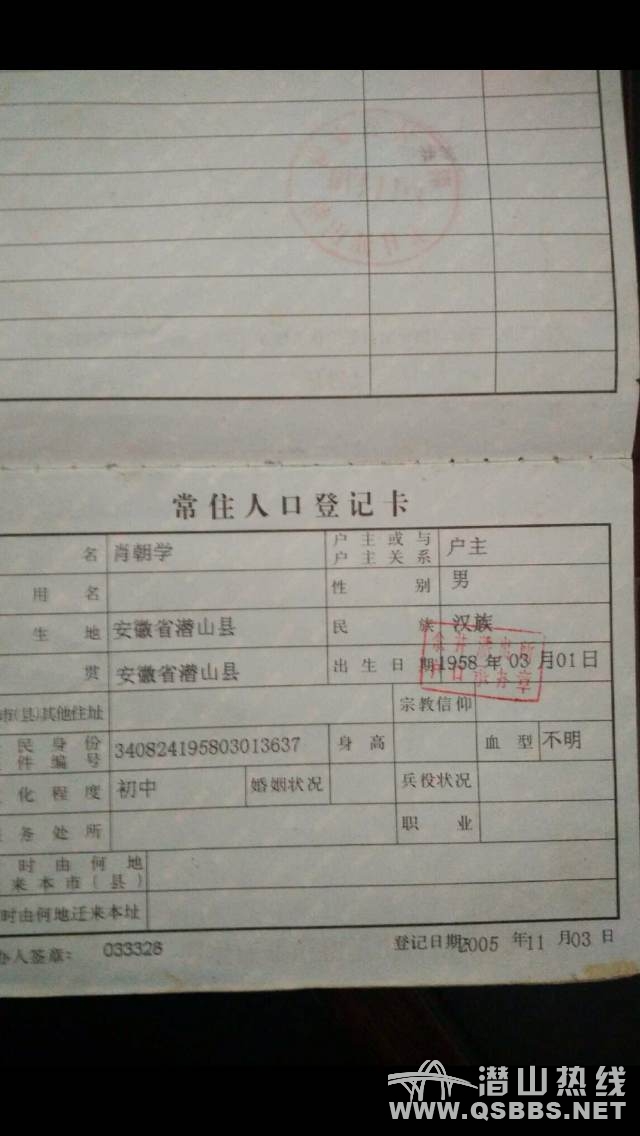 常住人口登记卡
名 肖朝学 户主或与户主关系 户主
用名 性别 男
生地 安徽省潜山县 民族 汉族
贯 安徽省潜山县 出生日期 1958年03月01日
市(县)其他住址 宗教信仰
民身份件编号 340824195803013637 身高 血型 不明
化程度 初中 婚姻状况 兵役状况
务处所 职业
时由何地来本市(县)
时由何地迁来本址
办人签章: 033328 登记日期: 2005年11月03日
潜山热线
WWW.QSBBS.NET